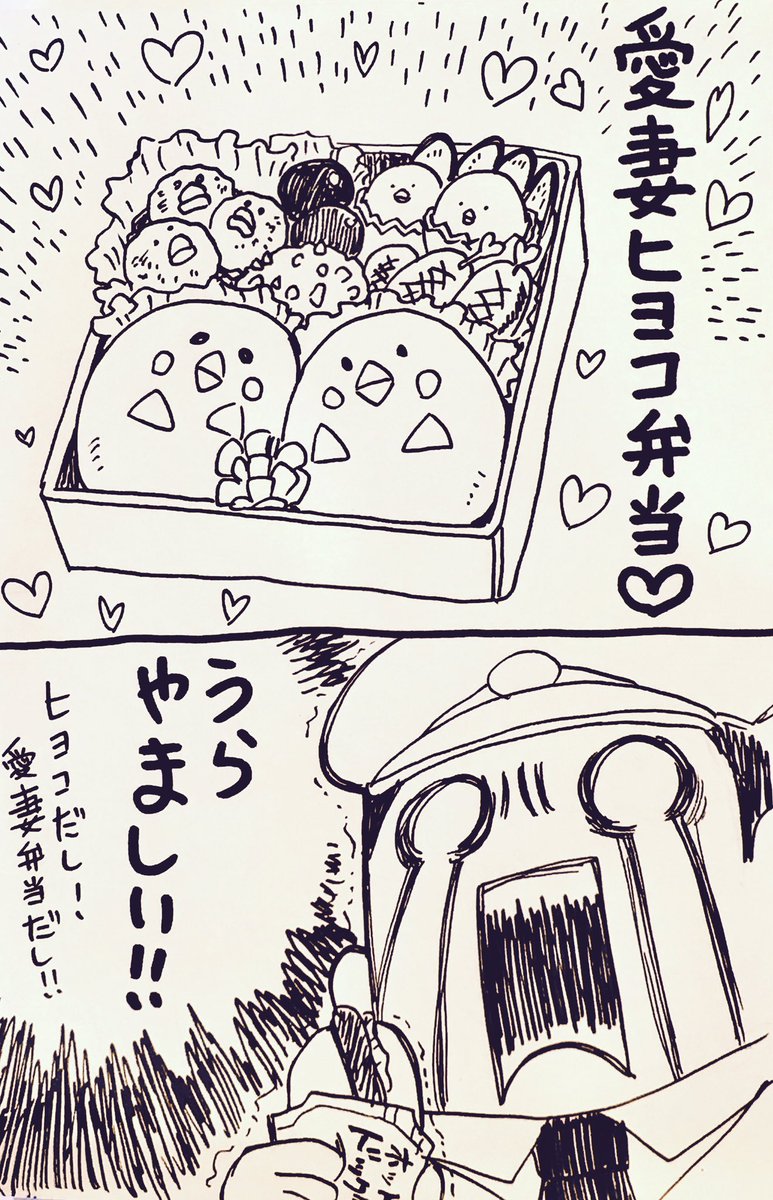 愛妻ヒヨコ弁当♡
うら
やましい!!
ヒヨコだし!
愛妻弁当だし!!
ホット
ドッグ